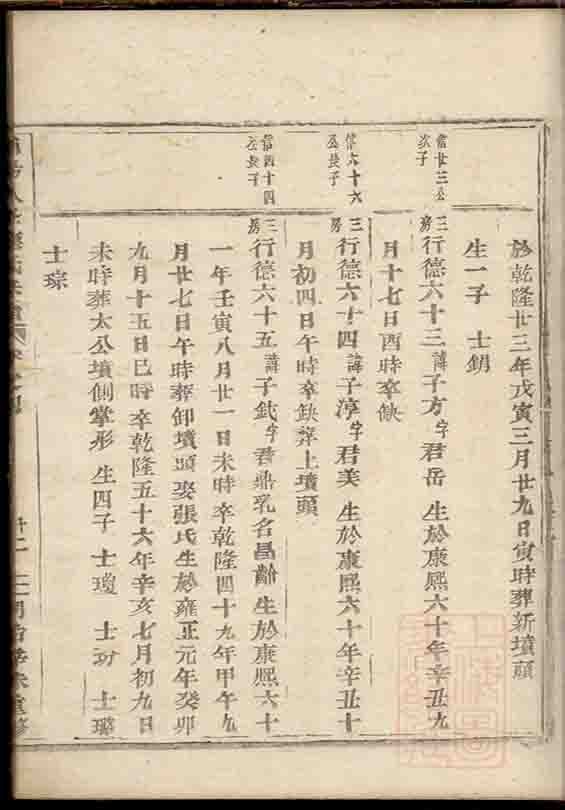 於乾隆廿三年戊寅三月廿九日寅時葬新墳頭
生一子 士鈅
常廿三公
次子
三房行德六十三諱子方字君岳 生於康熙六十年辛丑九
月十七日酉時卒缺
常六十六
公長子
三房行德六十四諱子淳字君美 生於康熙六十年辛丑十
月初四日午時卒缺葬上墳頭
常四十四
公長子
三房行德六十五諱子鈂字君鼎乳名昌齡 生於康熙六十
一年壬寅八月廿一日未時卒乾隆四十九年甲午九
月廿七日午時葬卸墳頭娶張氏生於雍正元年癸卯
九月十五日巳時卒乾隆五十六年辛亥七月初九日
未時葬太公墳側掌形 生四子 士瓊 士 士璐
士琮